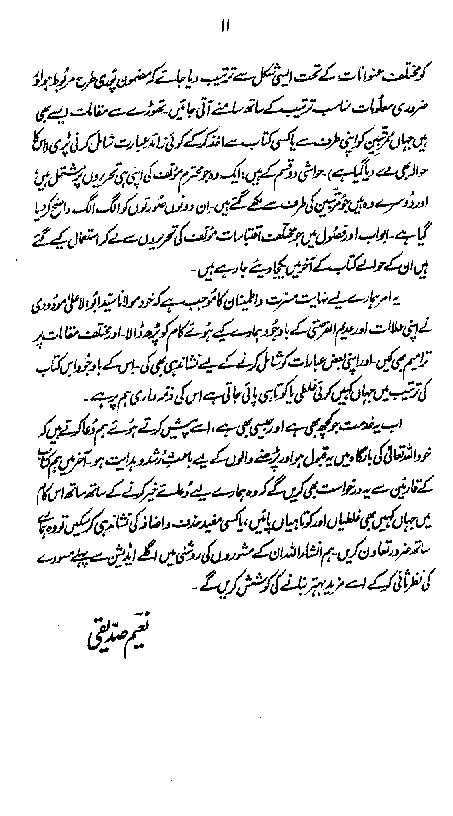 ۱۱
کو مختلف عنوانات کے تحت ایسی شکل سے ترتیب دیا جائے کہ مضمون پوری طرح مربوط ہو اور
ضروری معلومات مناسب ترتیب کے ساتھ سامنے آتی جائیں۔ تھوڑے سے مقامات ایسے بھی
ہیں جہاں مرتبین کو اپنی طرف سے یا کسی کتاب سے اخذ کر کے کوئی زائد عبارت شامل کرنی پڑی (اس کا
حوالہ بھی دے دیا گیا ہے)۔ حواشی دو قسم کے ہیں، ایک وہ جو محترم مؤلف کی اپنی ہی تحریروں پر مشتمل ہیں؛
اور دوسرے وہ ہیں جو مرتبین کی طرف سے لکھے گئے ہیں۔ ان دونوں صورتوں کو الگ الگ واضح کر دیا
گیا ہے۔ ابواب اور فصول میں جو مختلف اقتباسات مؤلف کی تحریروں سے لے کر استعمال کیے گئے
ہیں ان کے حوالے کتاب کے آخر میں یکجا دیئے جا رہے ہیں۔
یہ امر ہمارے لیے نہایت مسرت و اطمینان کا موجب ہے کہ خود مولانا سید ابوالاعلیٰ مودودی
نے اپنی علالت اور عدیم الفرصتی کے باوجود ہمارے کیے ہوئے کام کو پڑھ ڈالا۔ اور مختلف مقامات پر
ترامیم بھی کیں۔ اور اپنی بعض عبارات کو شامل کرنے کے لیے نشاندہی بھی کی۔ اس کے باوجود اس کتاب
کی ترتیب میں جہاں کہیں کوئی غلطی یا کوتاہی پائی جاتی ہے اس کی ذمہ داری ہم پر ہے۔
اب یہ خدمت جو کچھ بھی ہے اور جیسی بھی ہے، اسے پیش کرتے ہوئے ہم دُعا کرتے ہیں کہ
خود اللہ تعالیٰ کی بارگاہ میں یہ قبول ہو اور پڑھنے والوں کے لیے باعثِ رشد و ہدایت ہو۔ آخر میں ہم کتاب
کے قارئین سے یہ درخواست بھی کریں گے کہ وہ ہمارے لیے دُعائے خیر کرنے کے ساتھ ساتھ اس کام
میں جہاں کہیں بھی غلطیاں اور کوتاہیاں پائیں، یا کسی مفید حذف و اضافہ کی نشاندہی کر سکیں تو وہ ہمارے
ساتھ ضرور تعاون کریں۔ ہم انشاء اللہ ان کے مشوروں کی روشنی میں اگلے ایڈیشن سے پہلے مسودے
کی نظر ثانی کر کے اسے مزید بہتر بنانے کی کوشش کریں گے۔
نعیم صدیقی